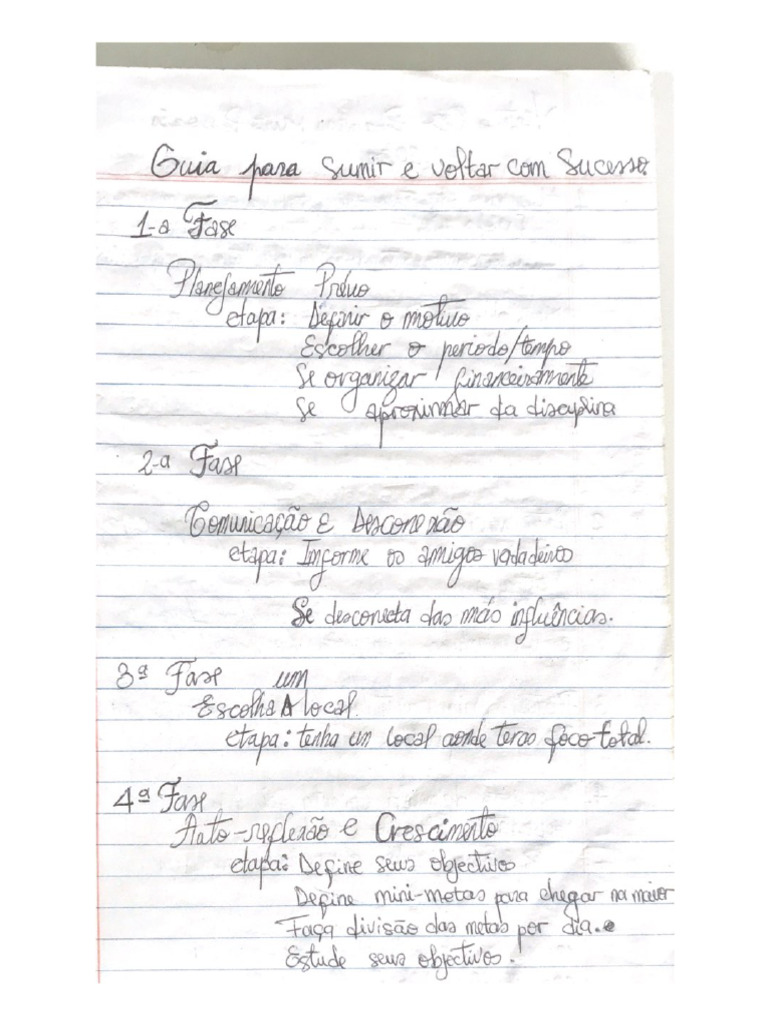 Guia para sumir e voltar com Sucesso.
1-a Fase
Planejamento Prévio
etapa: Definir o motivo
Escolher o periodo/tempo
Se organizar financeiramente
Se aproximar da disciplina
2-a Fase
Comunicação e Desconexão
etapa: Informe os amigos vadadeiros
Se desconecta das más influências.
3ª Fase
um
Escolha A local.
etapa: tenha un local aonde teras foco total.
4ª Fase
Auto-reflexão e Crescimento
etapa: Define seus objectivos
Define mini-metas para chegar na maior
Faça divisão das metas por dia. e
Estude seus objectivos.